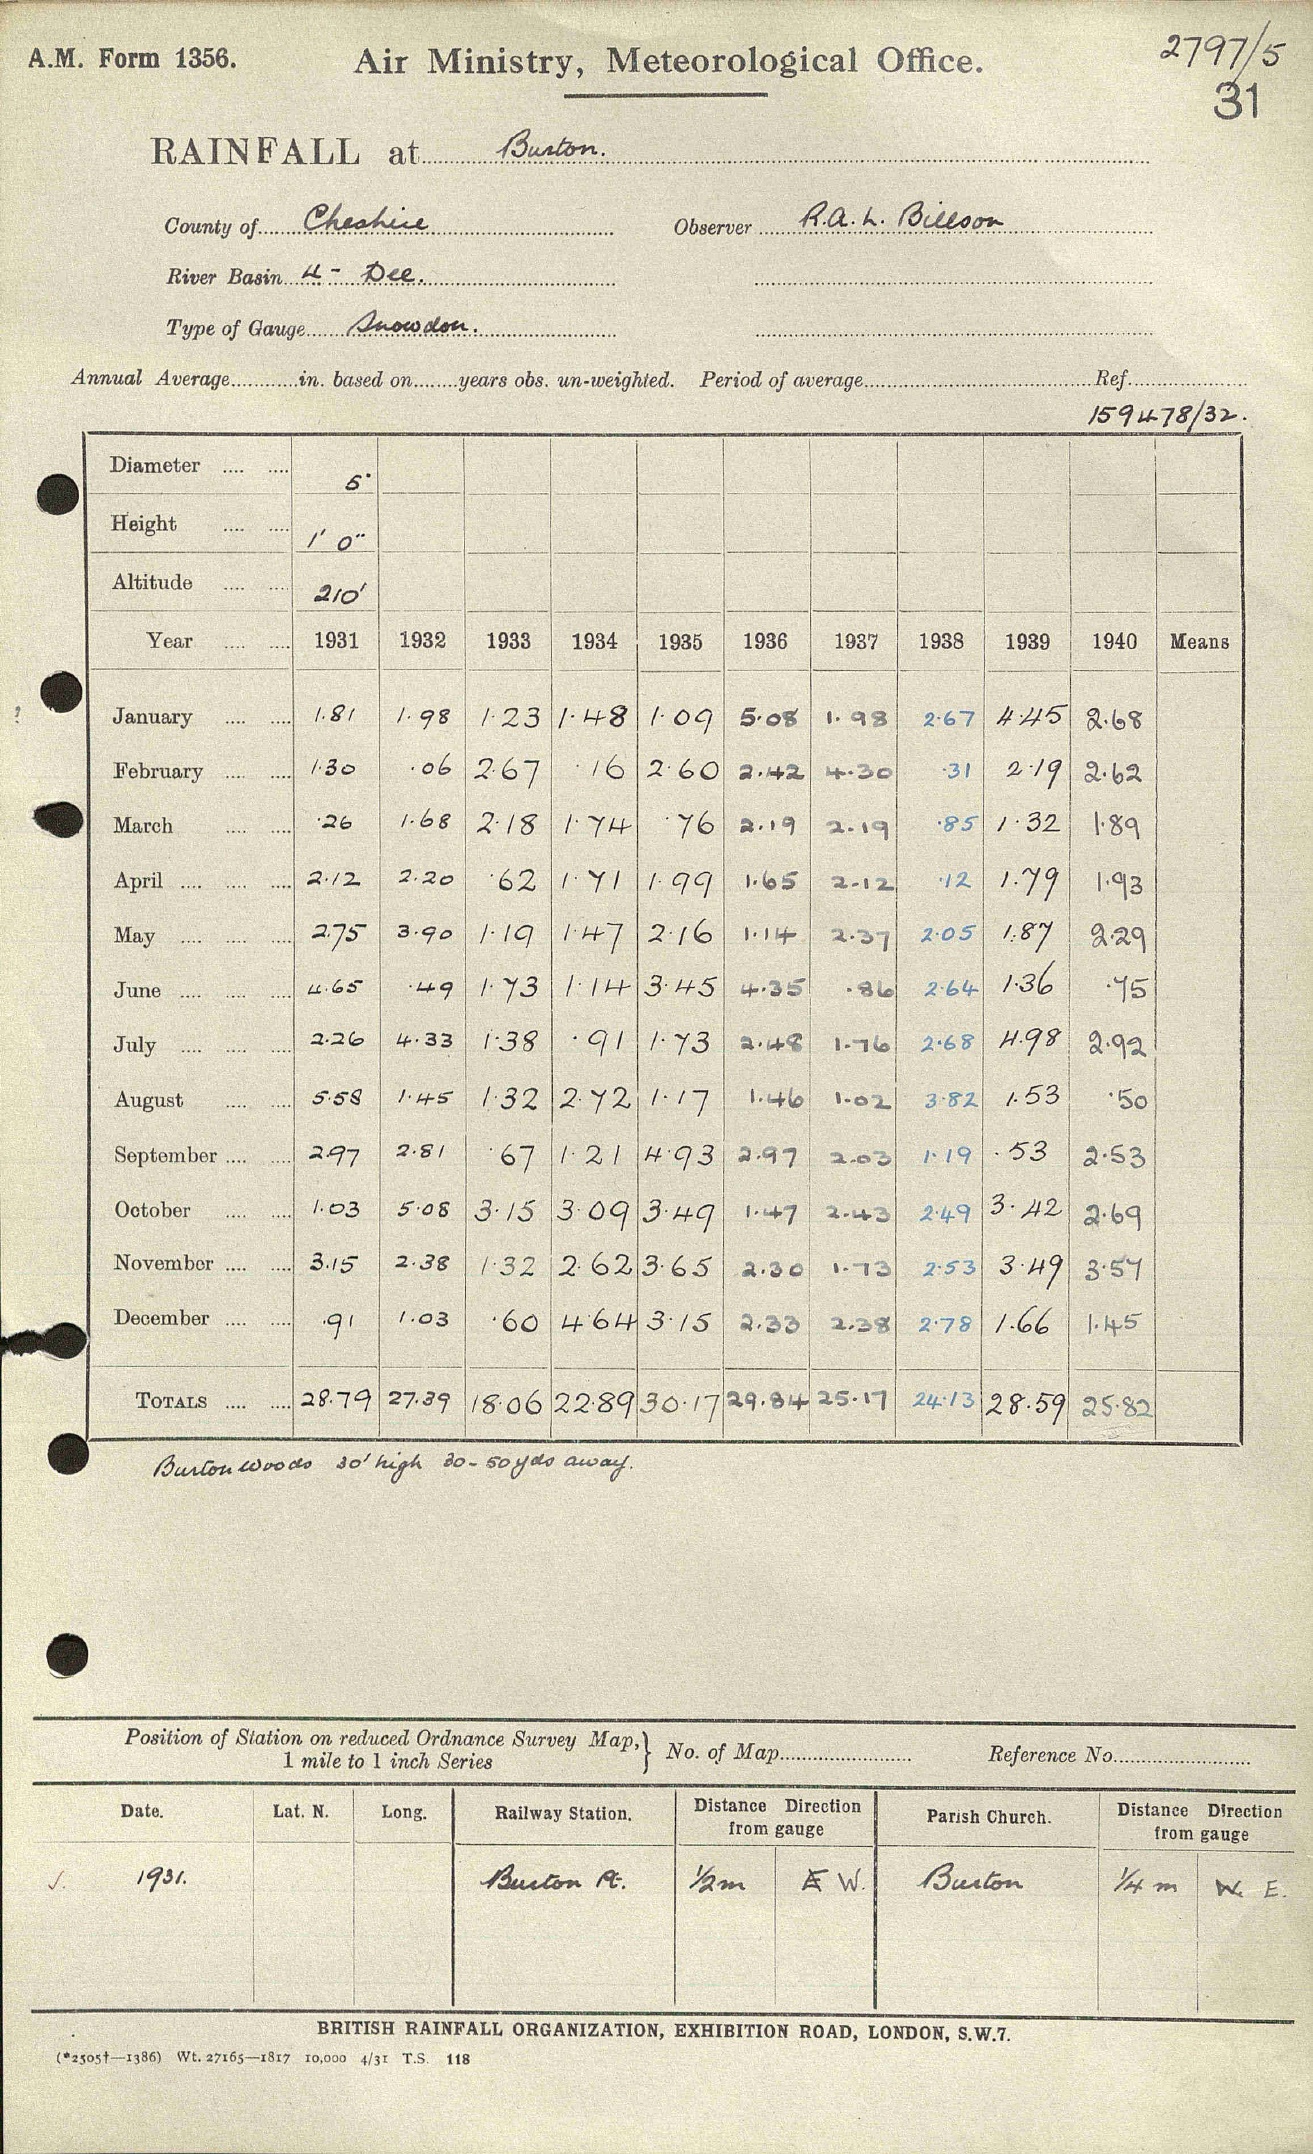 A.M. Form 1356. Air Ministry, Meteorological Office. 2797/5
31
RAINFALL at Burton.
County of Cheshire Observer R.A.L. Billson
River Basin 4 - Dee.
Type of Gauge Snowdon.
Annual Average in. based on years obs. un-weighted. Period of average Ref.
159478/32.
Diameter 5"
Height 1' 0"
Altitude 210'
Year 1931 1932 1933 1934 1935 1936 1937 1938 1939 1940 Means
January 1.81 1.98 1.23 1.48 1.09 5.08 1.98 2.67 4.45 2.68
February 1.30 .06 2.67 .16 2.60 2.42 4.30 .31 2.19 2.62
March .26 1.68 2.18 1.74 .76 2.19 2.19 .85 1.32 1.89
April 2.12 2.20 .62 1.71 1.99 1.65 2.12 .12 1.79 1.93
May 2.75 3.90 1.19 1.47 2.16 1.14 2.37 2.05 1.87 2.29
June 4.65 .49 1.73 1.14 3.45 4.35 .86 2.64 1.36 .75
July 2.26 4.33 1.38 .91 1.73 2.48 1.76 2.68 4.98 2.92
August 5.58 1.45 1.32 2.72 1.17 1.46 1.02 3.82 1.53 .50
September 2.97 2.81 .67 1.21 4.93 2.97 2.03 1.19 .53 2.53
October 1.03 5.08 3.15 3.09 3.49 1.47 2.43 2.49 3.42 2.69
November 3.15 2.38 1.32 2.62 3.65 2.30 1.73 2.53 3.49 3.57
December .91 1.03 .60 4.64 3.15 2.33 2.38 2.78 1.66 1.45
TOTALS 28.79 27.39 18.06 22.89 30.17 29.84 25.17 24.13 28.59 25.82
Burton woods 30' high 30-50yds away.
Position of Station on reduced Ordnance Survey Map,} No. of Map Reference No.
1 mile to 1 inch Series
Date. Lat. N. Long. Railway Station. Distance Direction from gauge Parish Church. Distance Direction from gauge
1931. Burton Pt. 1/2m E W. Burton 1/4 m W. E.
BRITISH RAINFALL ORGANIZATION, EXHIBITION ROAD, LONDON, S.W.7.
(*2505†—1386) Wt. 27165—1817 10,000 4/31 T.S. 118